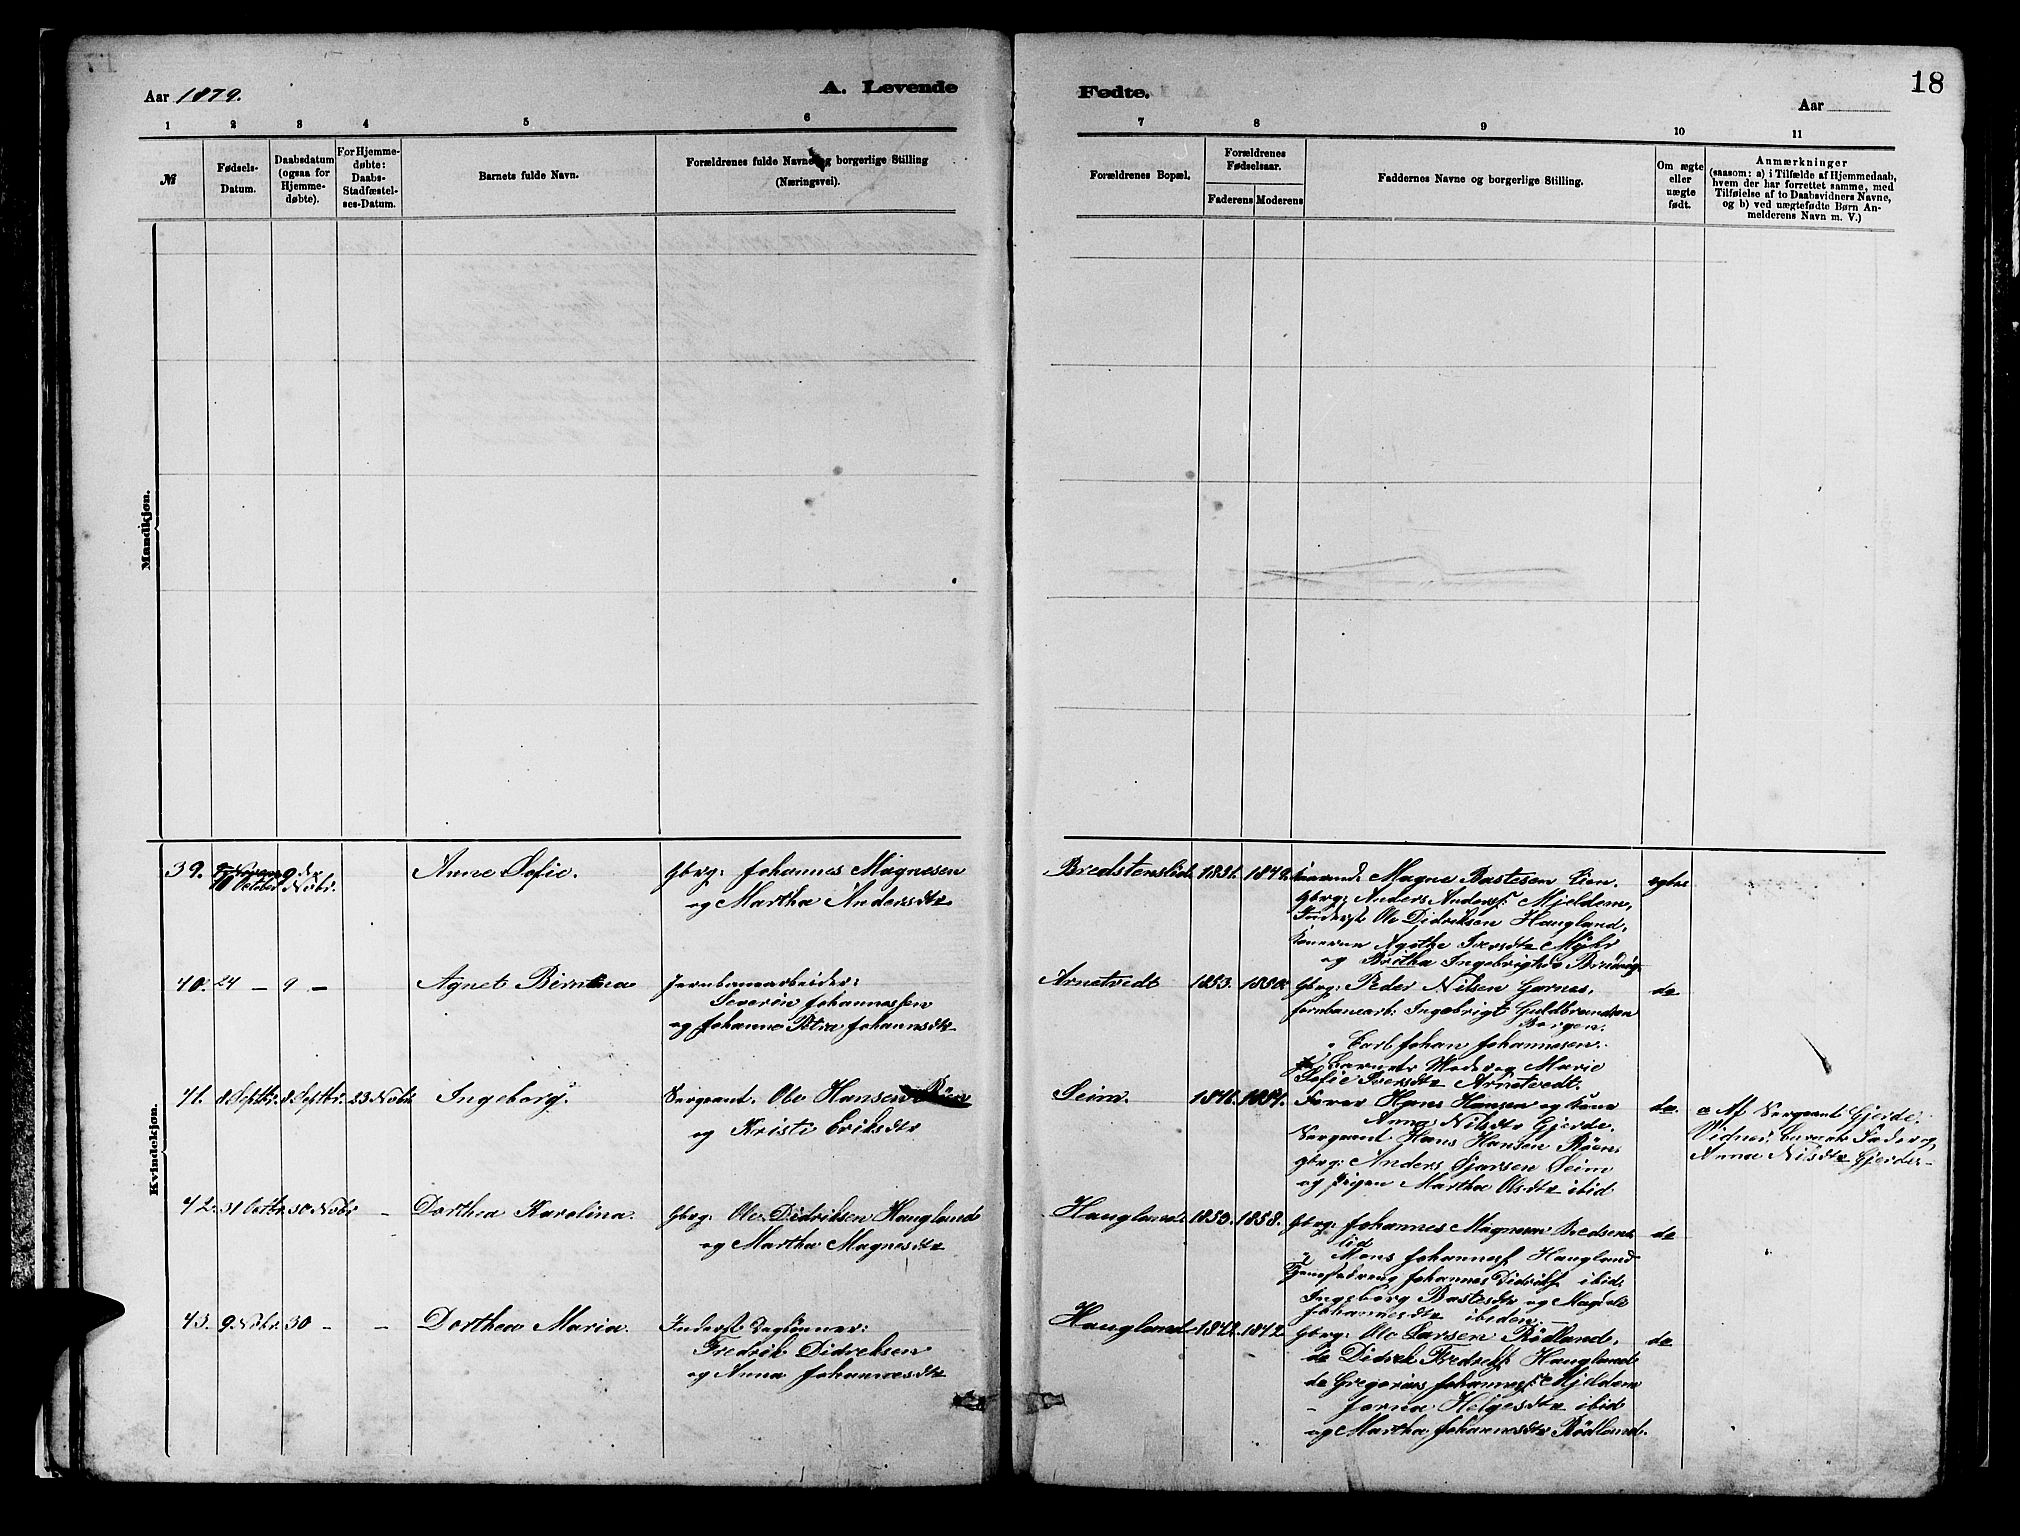 Aar 1879.
A. Levende
Fødte.
18
Aar
1 2 3 4 5 6 7 8 9 10 11
№
Fødsels-
Datum.
Daabsdatum
(ogsaa for
Hjemme-
døbte).
For Hjemme-
døbte:
Daabs-
Stadfæstel-
ses-Datum.
Barnets fulde Navn.
Forældrenes fulde Navne og borgerlige Stilling
(Næringsvei).
Forældrenes Bopæl.
Forældrenes
Fødselsaar.
Faderens Moderens
Faddernes Navne og borgerlige Stilling.
Om ægte
eller
uægte
født.
Anmærkninger
(saasom: a) i Tilfælde af Hjemmedaab,
hvem der har forrettet samme, med
Tilføielse af to Daabsvidners Navne,
og b) ved uægtefødte Børn An-
melderens Navn m. V.)
Mandkjøn.
Kvindekjøn.
39.
10 October
9 de
Novbr.
Anne Sofie.
Gbrg: Johannes Magnesen
og Martha Andersdtr
Bredstenslid 1831. 1842.
Magne Bastesen Lien.
Gbrg: Anders Anders. Mjeldem,
Inderst Ole Didriksen Haugland,
Iversdtr
og Britha Ingebrigtsd
egte
40. 24 – 9 –
Agnet Berntea
Jernbanearbeider:
Severin Johannessen
og Johanne Petra Johannsdtr
Arnetvedt 1853. 1850.
Gbrg: Peder Nilsen Garnes,
Jernbanearb: Ingebrigt Guldbrandsen
Bergen.
" Carl Johan Johannesen.
Barnets Moder og Marie
Sofie Iversdtr Arnetvedt.
do
41. 8 Septbr. 8 Septbr. 23 Novbr
Ingeborg.
Sergeant. Ole Hansen Röen
og Kristi Eriksdtr
Seim. 1846. 1854.
Forer Hans Hansen og Kone
Anna Nilsdtr Gjerde,
Sergeant Hans Hansen Röen
gbrg: Anders Larsen Seim
og pigen Martha Olsdtr ibid
do
a Af Sergeant Gjerde.
Vidner: Barnets Fader og
Anna Nilsdtr Gjerde –
42. 31 Octbr. 30 Novbr –
Dorthea Karolina.
Gbrg: Ole Didriksen Haugland
og Martha Magnesdtr
Haugland. 1853. 1858.
Gbrg: Johannes Magnesen Bredsens
lid
" Mons Johannesf Haugland
Tjenestedreng Johannes Didriksf ibid.
Ingeborg Bastesdtr og Magdele
Johannesdtr ibidem. –
do
43. 9 Novbr. 30 – –
Dorthea Maria.
Inderst Daglönner:
Fredrik Didreksen
og Anna Johannesdtr
Haugland 1842. 1842
Gbrg: Ole Larsen Rödland,
do Didrek Fredreksf Haugland
do Gregorius Johannesf. Mjeldem
– Jorna Helgesdtr ibid
og Martha Johannesdtr Rödland.
do